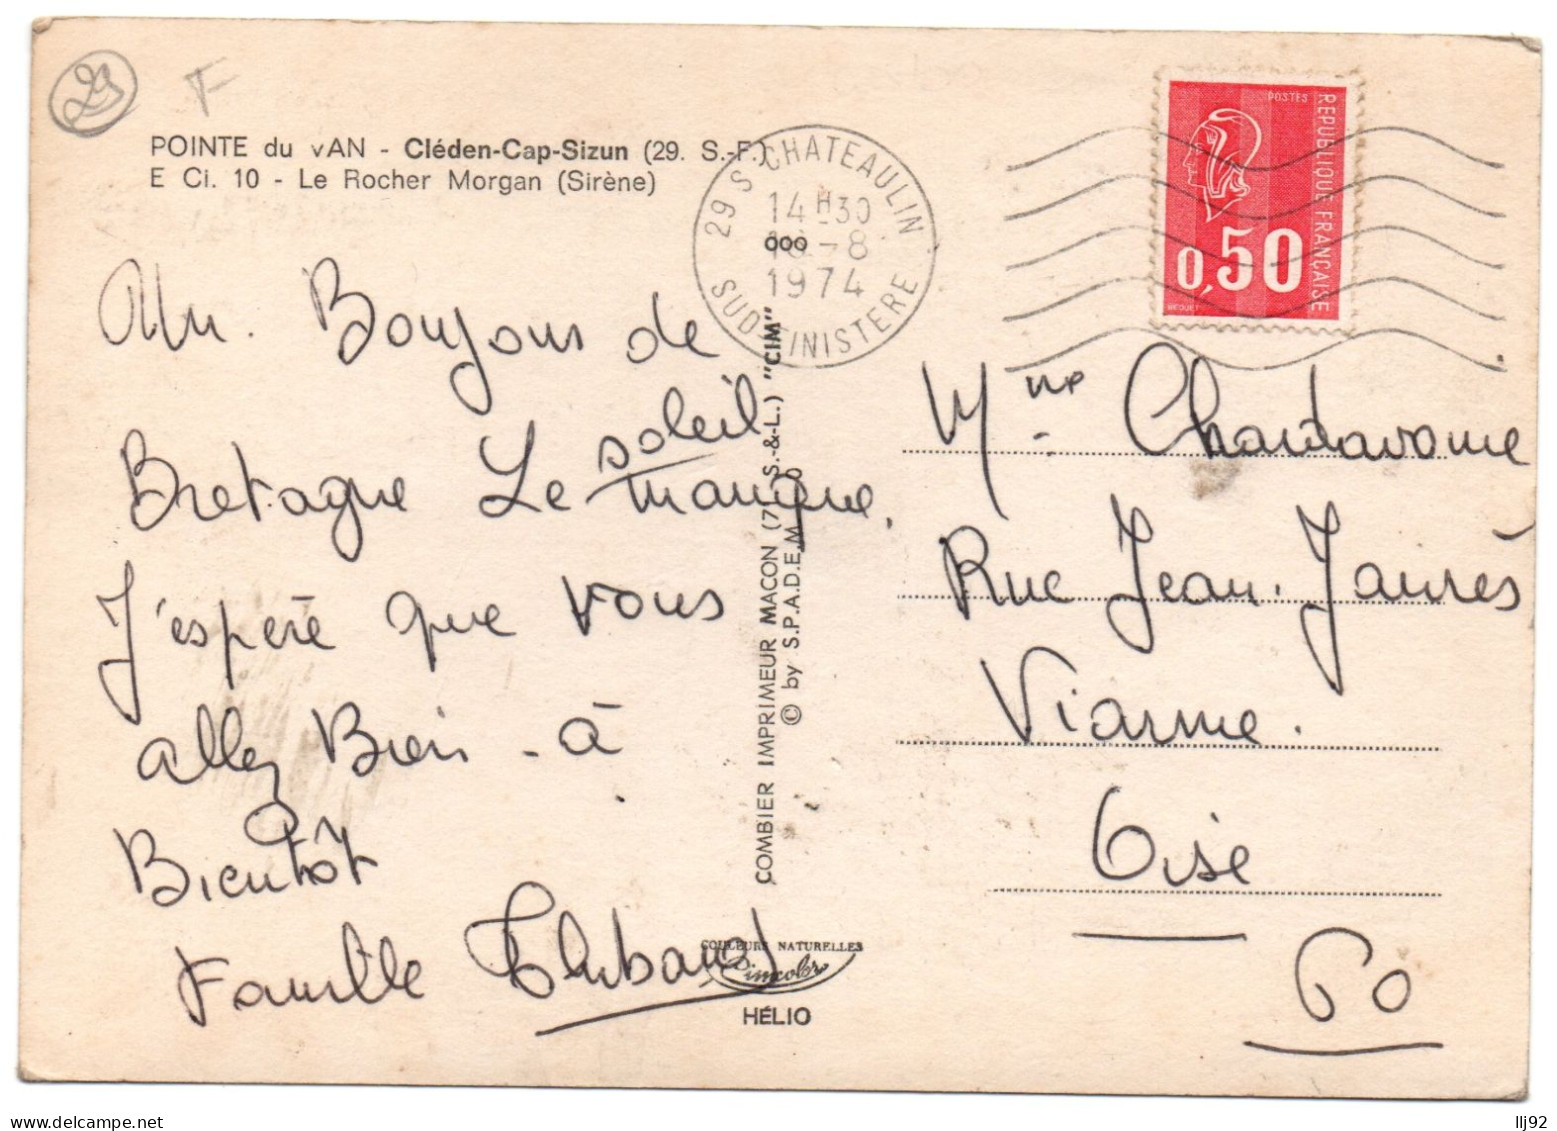 29
F
POINTE du vAN - Cléden-Cap-Sizun (29. S.-F.)
E Ci. 10 - Le Rocher Morgan (Sirène)
29 S CHATEAULIN
14H30
-8
1974
SUD-FINISTERE
POSTES
REPUBLIQUE FRANÇAISE
0,50
BEQUET
Un. Boujours de
Bretagne Le soleil
manque.
J'espère que vous
allez Bien - à
Bientôt
Famille Thibaud
COMBIER IMPRIMEUR MACON (71 S.-&-L.) "CIM"
© by S.P.A.D.E.M.
COULEURS NATURELLES
Cimcolor
HÉLIO
Mme Chardavoine
Rue Jean. Jaurès
Viarme.
Oise
60
www.delcampe.net
llj92